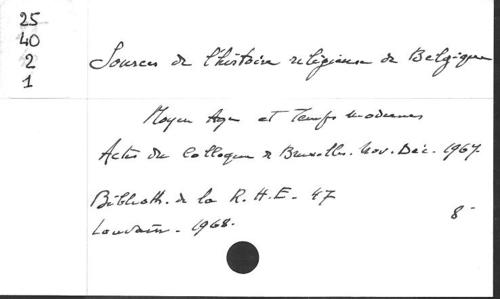 25
40
2
1
Sources de l'histoire religieuse de Belgique
Moyen Age et Temps modernes
Actes du Colloque de Bruxelles. Nov. Déc. 1967.
Biblioth. de la R.H.E. - 47
Louvain. - 1968.
8°